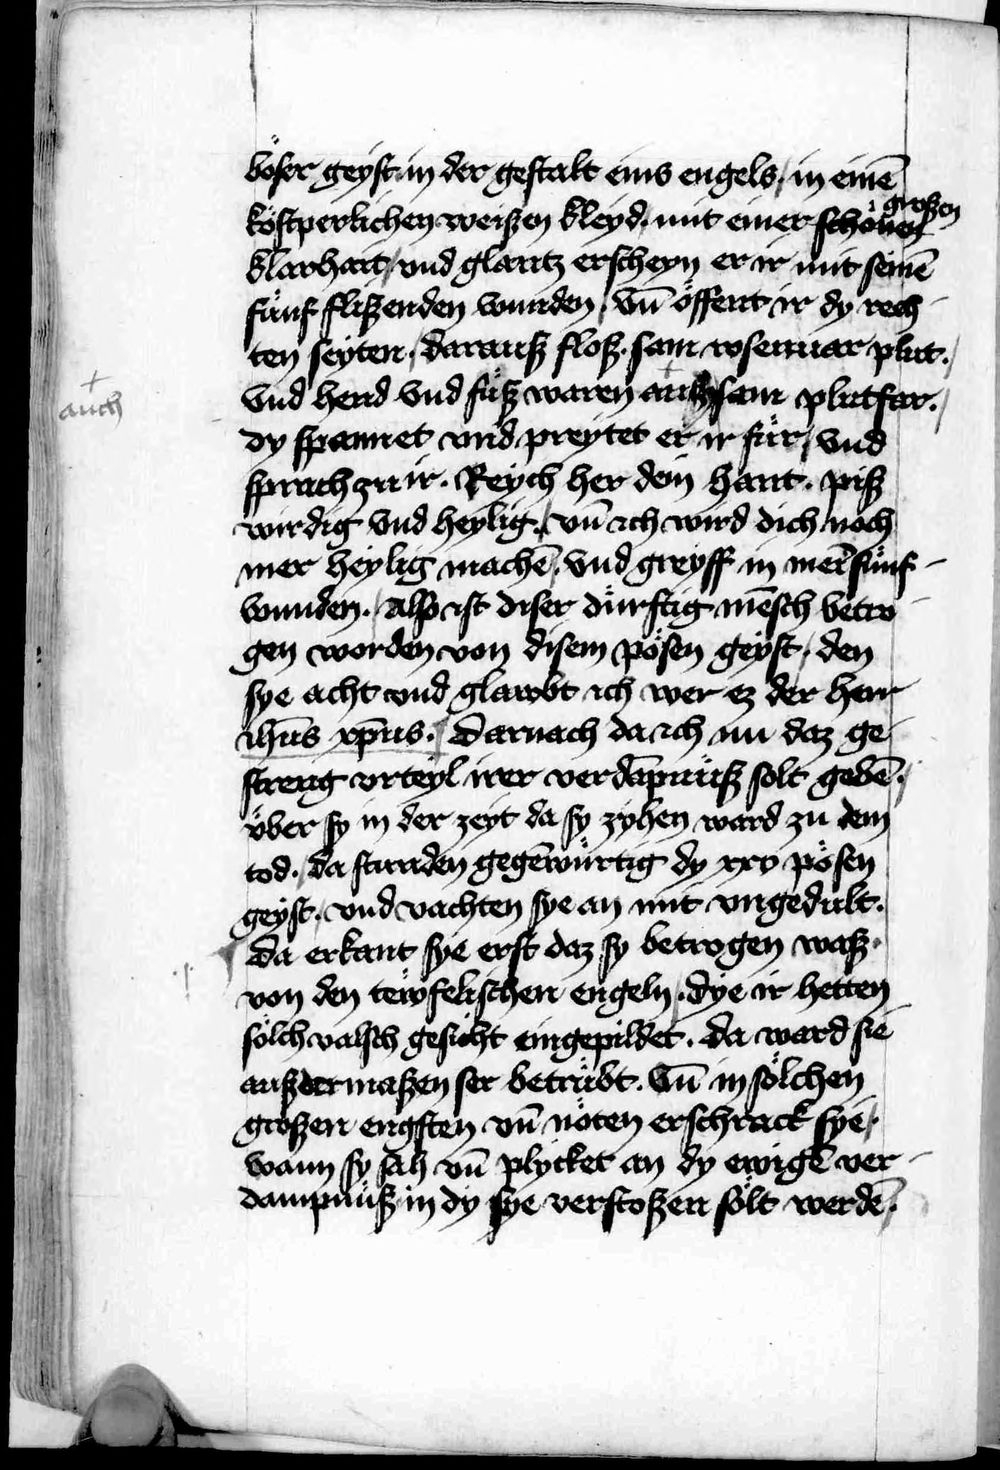 böser geyst in der gestalt eins engels / in einē
köstperlichen weißen kleyd / mit einer schönen großen
klarhait / vnd glantz erscheyn er ir mit seinē
fünf flißenden wunden / vn̄ öffent ir dy rech-
ten seyten / darauß floß sam rosenuar plut. /
Vnd hend vnd füß waren auch sam plutfar. /
auch
dy spannet vnd preytet er ir für / vnd
sprach zu ir. Reych her dein hant. piß
wirdig vnd heylig / vn̄ ich wird dich noch
mer heylig machē / vnd greyff in mein fünf-
wunden. / Also ist diser dürftig mēsch betro-
gen worden von disem pösen geyst / den
sye acht vnd glawbt ich wer ez der herr
ihūs xp̄us. Darnach da ich nu daz ge-
streng vrteyl irer verdāpnüß solt gebē. /
über sy in der zeyt da sy zyhen ward zu dem
tod. / da stunden gegēwürtig dy xxv pösen
geyst / vnd vachten sye an mit vngedult.
Da erkant sye erst daz sy betrogen waß
von den tewfelischen engeln / dye ir hetten
sölch valsch gesicht eingepildet. Da ward sie
außdermaßen ser betrübt. Vn̄ in sölchen
großen engsten vn̄ nöten erschrack sye /
wann sy sah vn̄ plycket an dy ewigē ver-
dampnüß in dy sye verstoßen sölt werdē. /